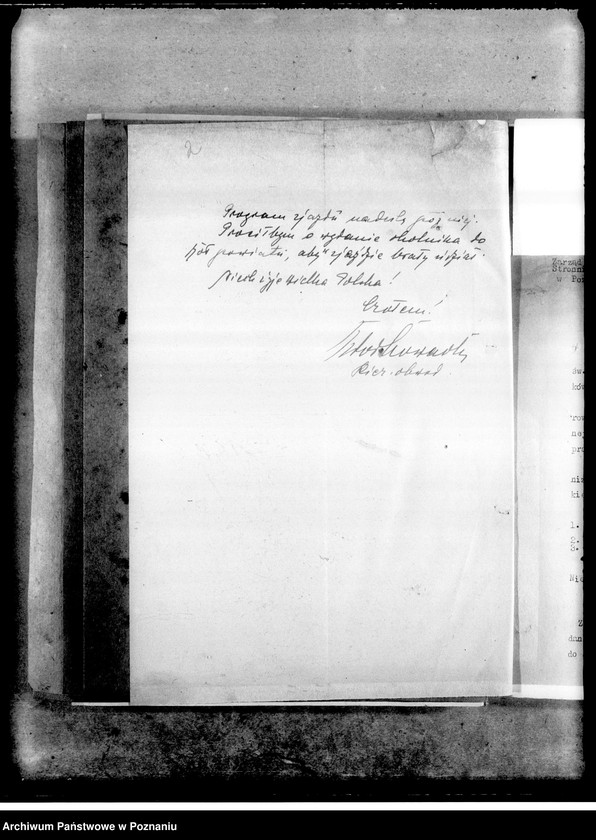 2
Program zjazdu nadeślę później.
Prosiłbym o wydanie okólnika do
kół powiatu, aby w zjeździe brały udział.
Niech żyje wielka Polska!
Czołem!
Kier. obwod.
Zarząd
Stronni
w Poz
św.
ków
row
nej
pro
niz
kie
1.
2.
3.
Nie
Z
dnu
do
Archiwum Państwowe w Poznaniu